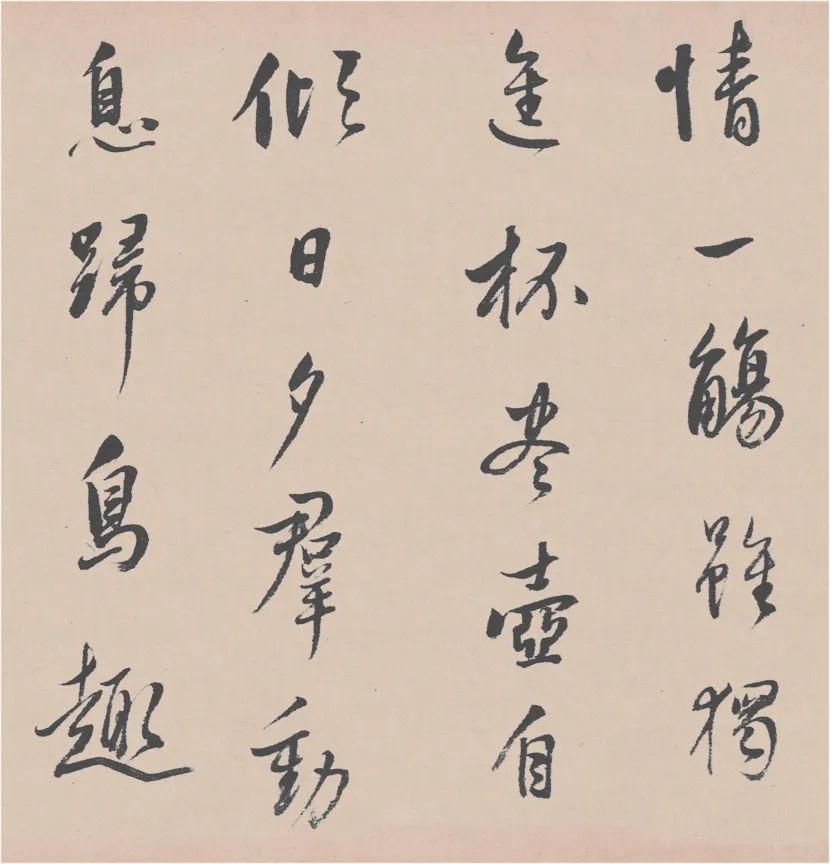 情一觴雖獨
進杯尽壺自
傾日夕羣動
息歸鳥趣